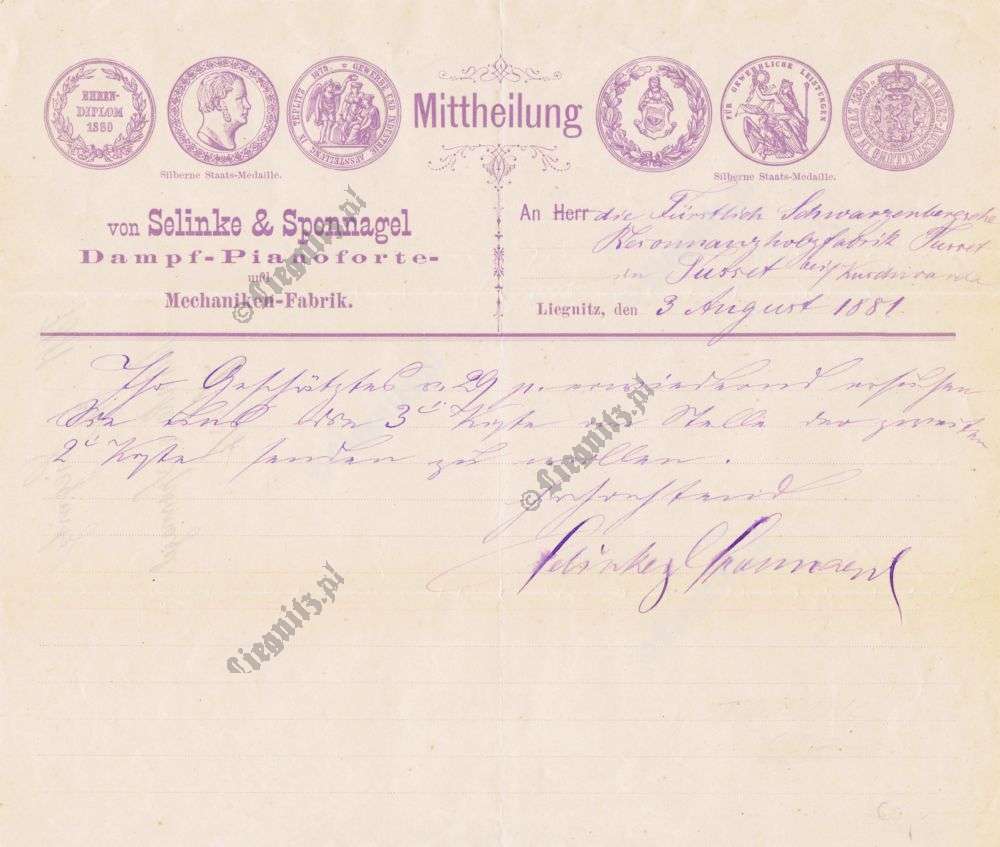 EHREN-
DIPLOM
1880
GEWERBE UND INDUSTRIE AUSSTELLUNG
1879
Silberne Staats-Medaille.
Mittheilung
FÜR GEWERBLICHE LEISTUNGEN
Silberne Staats-Medaille.
von Selinke & Sponnagel
Dampf-Pianoforte-
und
Mechaniken-Fabrik.
An Herr die Fürstlich Schwarzenbergsche
Resonnanzholzfabrik Tusset
in Tusset bei Kuschwarda
Liegnitz, den 3 August 1881.
Ihr Geschätztes v. 29 p. erwiedernd ersuchen
Sie uns die 3 Kyste an Stelle der zweiten
2 Kyste senden zu wollen.
Hochachtend
Selinke & Sponnagel
©Liegnitz.pl
©Liegnitz.pl
Liegnitz.pl